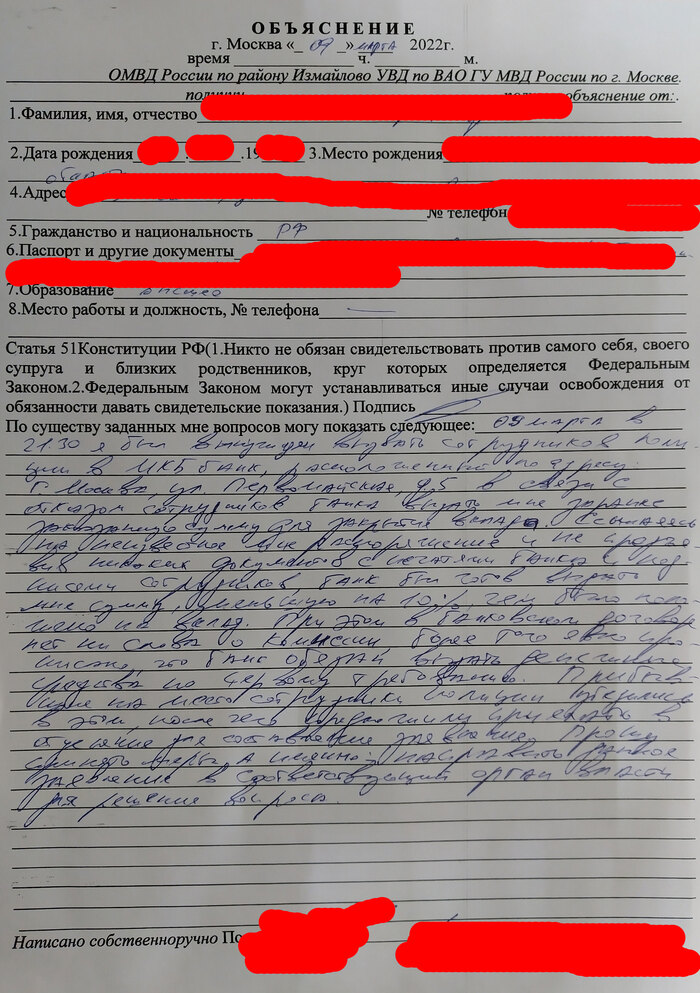 ОБЪЯСНЕНИЕ
г. Москва «_09_» марта 2022г.
время ____ ч. ____ м.
ОМВД России по району Измайлово УВД по ВАО ГУ МВД России по г. Москве.
объяснение от:.
1.Фамилия, имя, отчество
2.Дата рождения . .19 3.Место рождения
4.Адрес
№ телефон
5.Гражданство и национальность РФ
6.Паспорт и другие документы
7.Образование высшее
8.Место работы и должность, № телефона —
Статья 51Конституции РФ(1.Никто не обязан свидетельствовать против самого себя, своего
супруга и близких родственников, круг которых определяется Федеральным
Законом.2.Федеральным Законом могут устанавливаться иные случаи освобождения от
обязанности давать свидетельские показания.) Подпись
По существу заданных мне вопросов могу показать следующее: 09 марта в
21:30 я был вынужден вызвать сотрудников поли-
ции в МКБ банк, расположенный по адресу:
г. Москва, ул. Первомайская, д.5 в связи с
отказом сотрудников банка выдать мне заранее
заказанную сумму для закрытия вклада. Ссылаясь
на неизвестное мне распоряжение и не предъя-
вив никаких документов с печатями банка и под-
писями сотрудников, банк был готов выдать
мне сумму, меньшую на 10%, чем было поло-
жено на вклад. При этом в банковском договоре
нет ни слова о комиссии, более того явно про-
писано, что банк обязан выдать денежные
средства по первому требованию. Прибыв-
шие на место сотрудники полиции убедились
в этом, после чего предложили приехать в
отделение для составления заявления. Прошу
принять меры, а именно: направить данное
заявление в соответствующий орган власти
для решения вопроса.
Написано собственноручно По